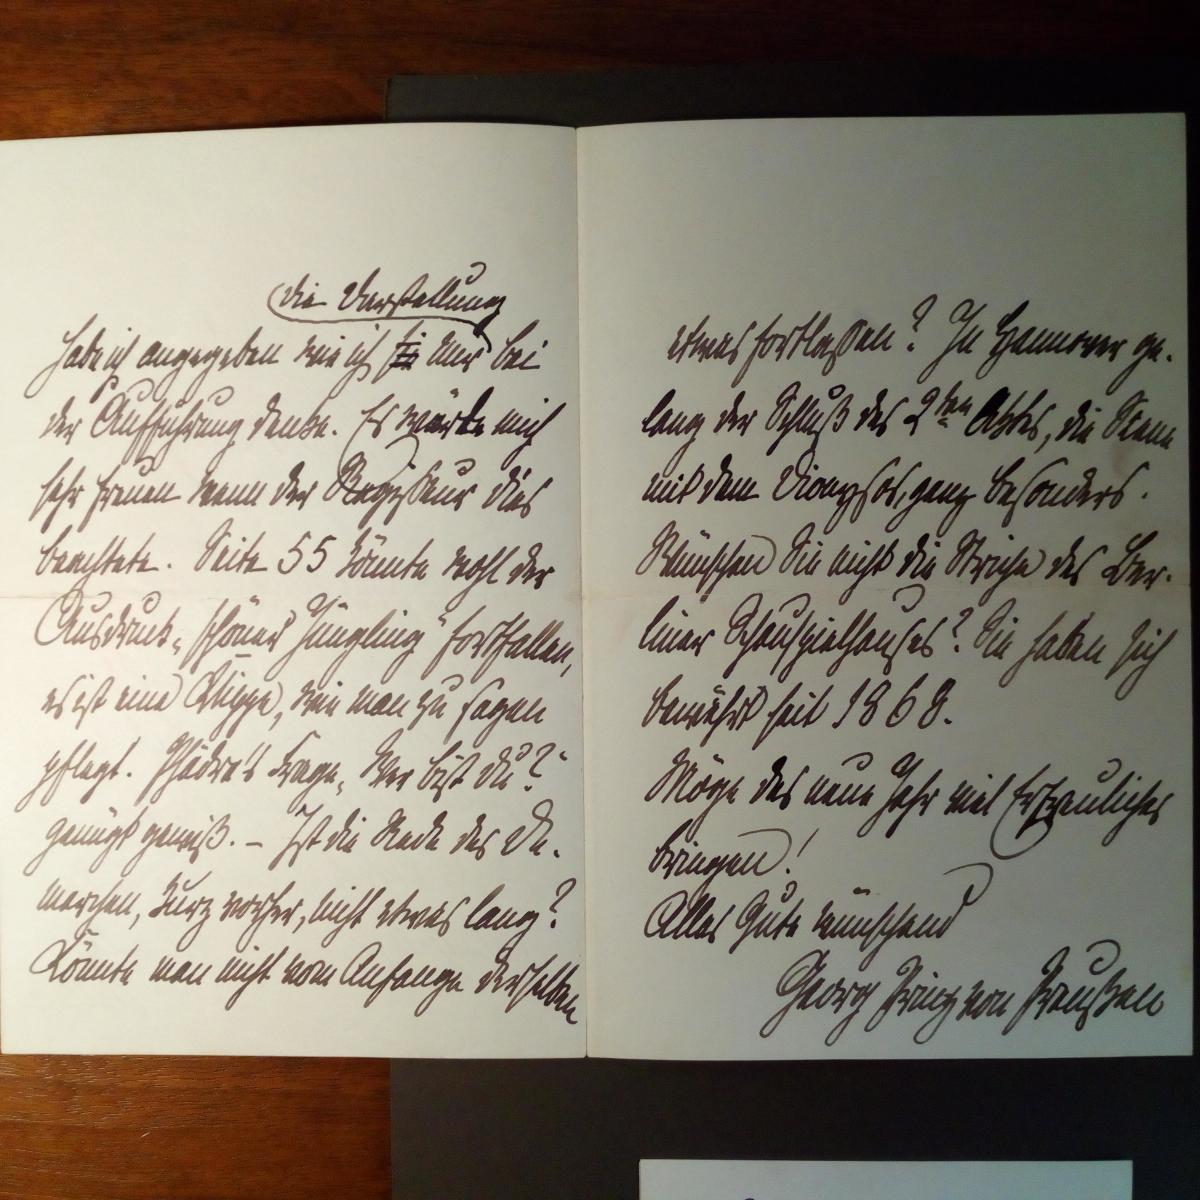 die Darstellung
habe ich angegeben wie ich sie mir bei
der Aufführung denke. Es würde mich
sehr freuen wenn der Regisseur dies
beachtete. Seite 55 könnte wohl der
Ausdruck „schöner Jüngling" fortfallen,
es ist eine Klippe, wie man zu sagen
pflegt. Phädra's Frage „Wer bist du?"
genügt gewiß. – Ist die Rede des De-
marchen, kurz vorher, nicht etwas lang?
Könnte man nicht vom Anfange derselben
etwas fortlassen? In Hannover ge-
lang der Schluß des 2ten Aktes, die Scene
mit dem Dionysos, ganz besonders.
Wünschen Sie nicht die Striche des Ber-
liner Schauspielhauses? Sie haben sich
bewährt seit 1868.
Möge das neue Jahr viel Erfreuliches
bringen!
Alles Gute wünschend
Georg Prinz von Preußen